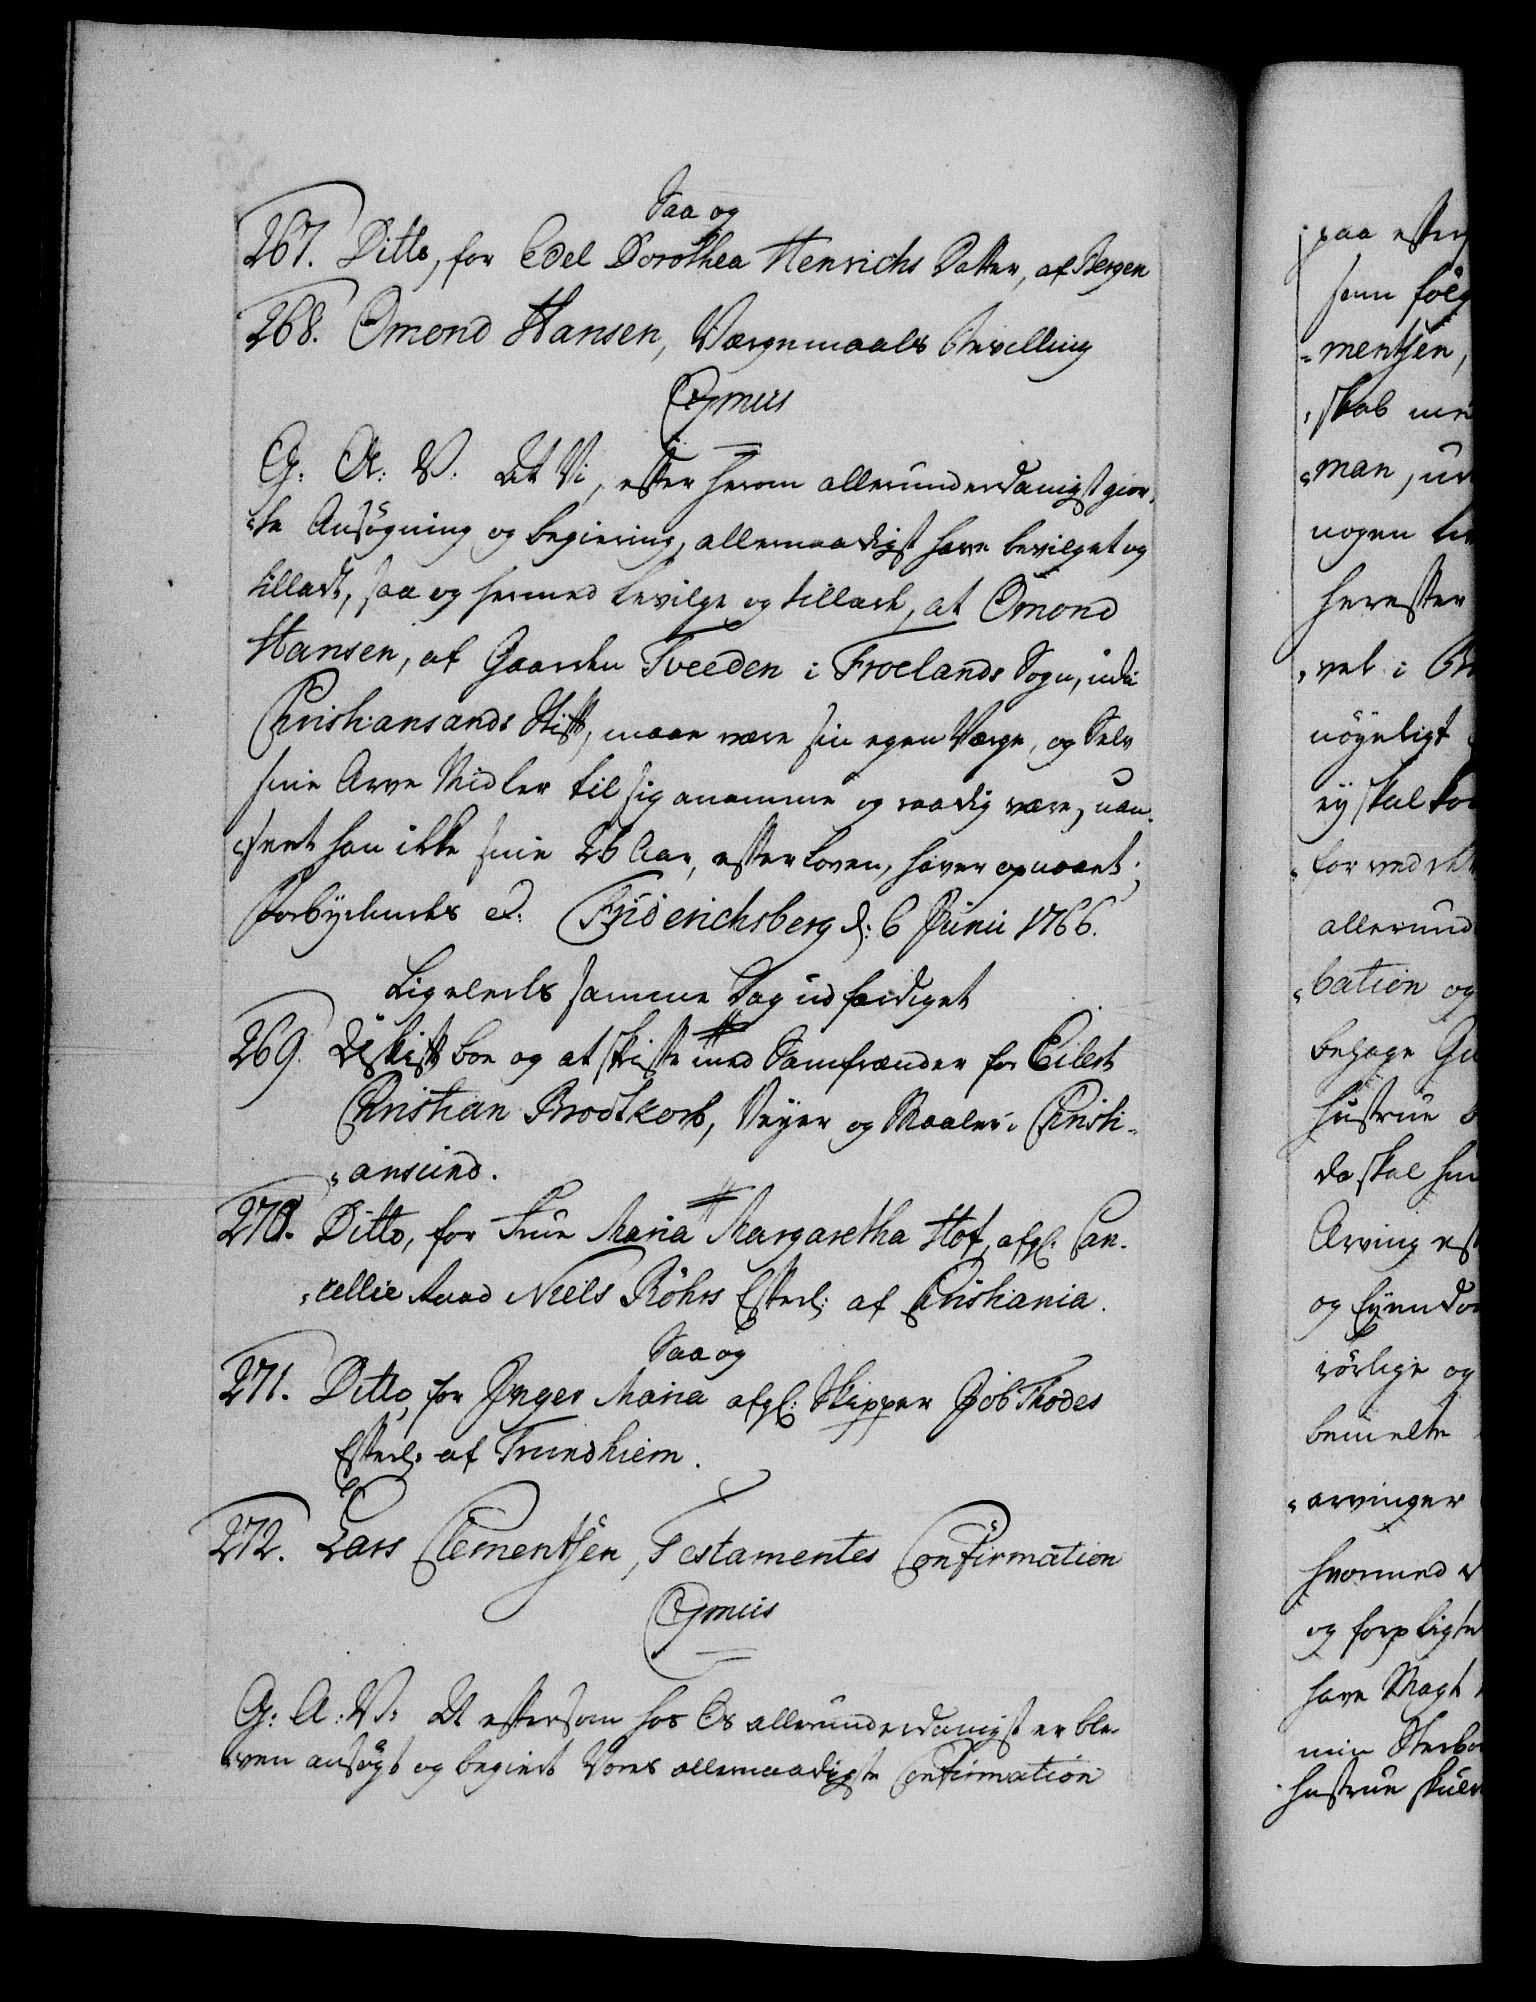 Saa og
267. Ditto, for Edel Dorothea Henrichs Datter, af Bergen
268. Omond Hansen, Værgemaals Bevilling
C7mus
G: A: V: At Vi, efter herom allerunderdanigst gior-
-te Ansøgning og begiering, allernaadigst have bevilget og
tilladt, saa og hermed bevilge og tillade, at Omond
Hansen, af Gaarden Tveeden i Froelands Sogn, udi
Christiansands Stift, maae være sin egen Værge, og Selv
sine Arve Midler til sig anamme og raadig være, uan-
-seet han ikke sine 25 Aar, efter Loven, haver opnaaet;
Forbydendes &: Friderichsberg d: 6 Junii 1766.
Ligeleedes samme Dag udfærdiget
269. Uskift boe og at skifte med Samfrænder for Eilert
Christian Brodtkorb, Veyer og Maaler i Christi-
-ansund.
270. Ditto, for Frue Maria Margaretha Hof, afgl: Can-
-cellie Raad Niels Röhrs Efterl: af Christiania.
Saa og
271. Ditto, for Inger Maria afgl: Skipper Job Thodes
Efterl: af Trundhiem.
272. Lars Clementsen, Testamentes Confirmation
C7mus
G: A: V: At eftersom hos Os allerunderdanigst er ble-
-ven ansøgt og begiert Vores allernaadigste Confirmation
paa efter
som følg
-mentsen,
-skab
-man, ud
nogen
herefter
-vet i
nøyeligt
ey skal
-for ved
allerund
-bation og
behage Gu
hustrue
da skal
Arving
og Eyendo
rörlige og
bemelte
-arvinger
hvormed
og forpligte
have Magt
min Sterbo
hustrue skul